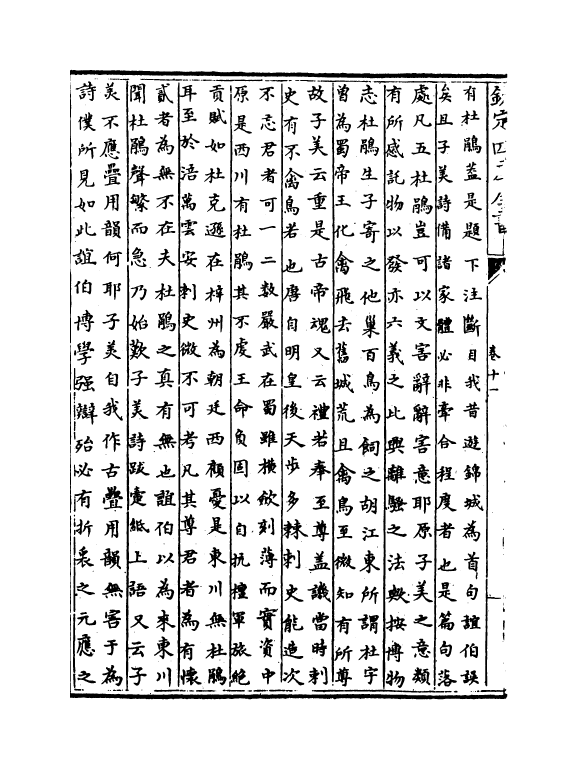 欽定四庫全書
卷十一
有杜鵑蓋是題下注斷自我昔遊錦城為首句誼伯誤
矣且子美詩備諸家體必非牽合程度者也是篇句落
處凡五杜鵑豈可以文害辭辭害意耶原子美之意類
有所感託物以發亦六義之比興離騷之法歟按博物
志杜鵑生子寄之他巢百鳥為飼之胡江東所謂杜宇
曾為蜀帝王化禽飛去舊城荒且禽鳥至微知有所尊
故子美云重是古帝魂又云禮若奉至尊蓋譏當時刺
史有不禽鳥若也唐自明皇後天步多棘刺史能造次
不忘君者可一二數嚴武在蜀雖橫歛刻薄而實資中
原是西川有杜鵑其不虔王命負固以自抗擅軍旅絶
貢賦如杜克遜在梓州為朝廷西顧憂是東川無杜鵑
耳至於涪萬雲安刺史微不可考凡其尊君者為有懷
貳者為無不在夫杜鵑之真有無也誼伯以為來東川
聞杜鵑聲繁而急乃始歎子美詩跋疐紙上語又云子
美不應疊用韻何耶子美自我作古疊用韻無害于為
詩僕所見如此誼伯博學强辯殆必有折衷之元應之